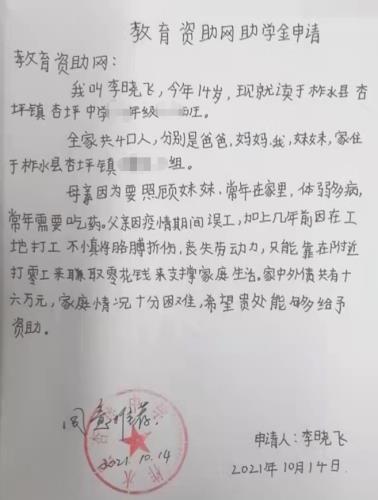 教育资助网助学金申请
教育资助网：
我叫李晓飞，今年14岁，现就读于柞水县杏
坪镇杏坪中学 年级 班。
全家共4口人，分别是爸爸，妈妈，我，妹妹，家住
于柞水县杏坪镇 组。
母亲因为要照顾妹妹，常年在家里，体弱多病，
常年需要吃药。父亲因疫情期间误工，加上几年前因在工
地打工不慎将胳膊折伤，丧失劳动力，只能靠在附近
打零工来赚取零花钱来支撑家庭生活。家中外债共有十
六万元，家庭情况十分困难，希望贵处能够给予
资助。
同意推荐.
2021.10.14
申请人：李晓飞
2021年10月14日.